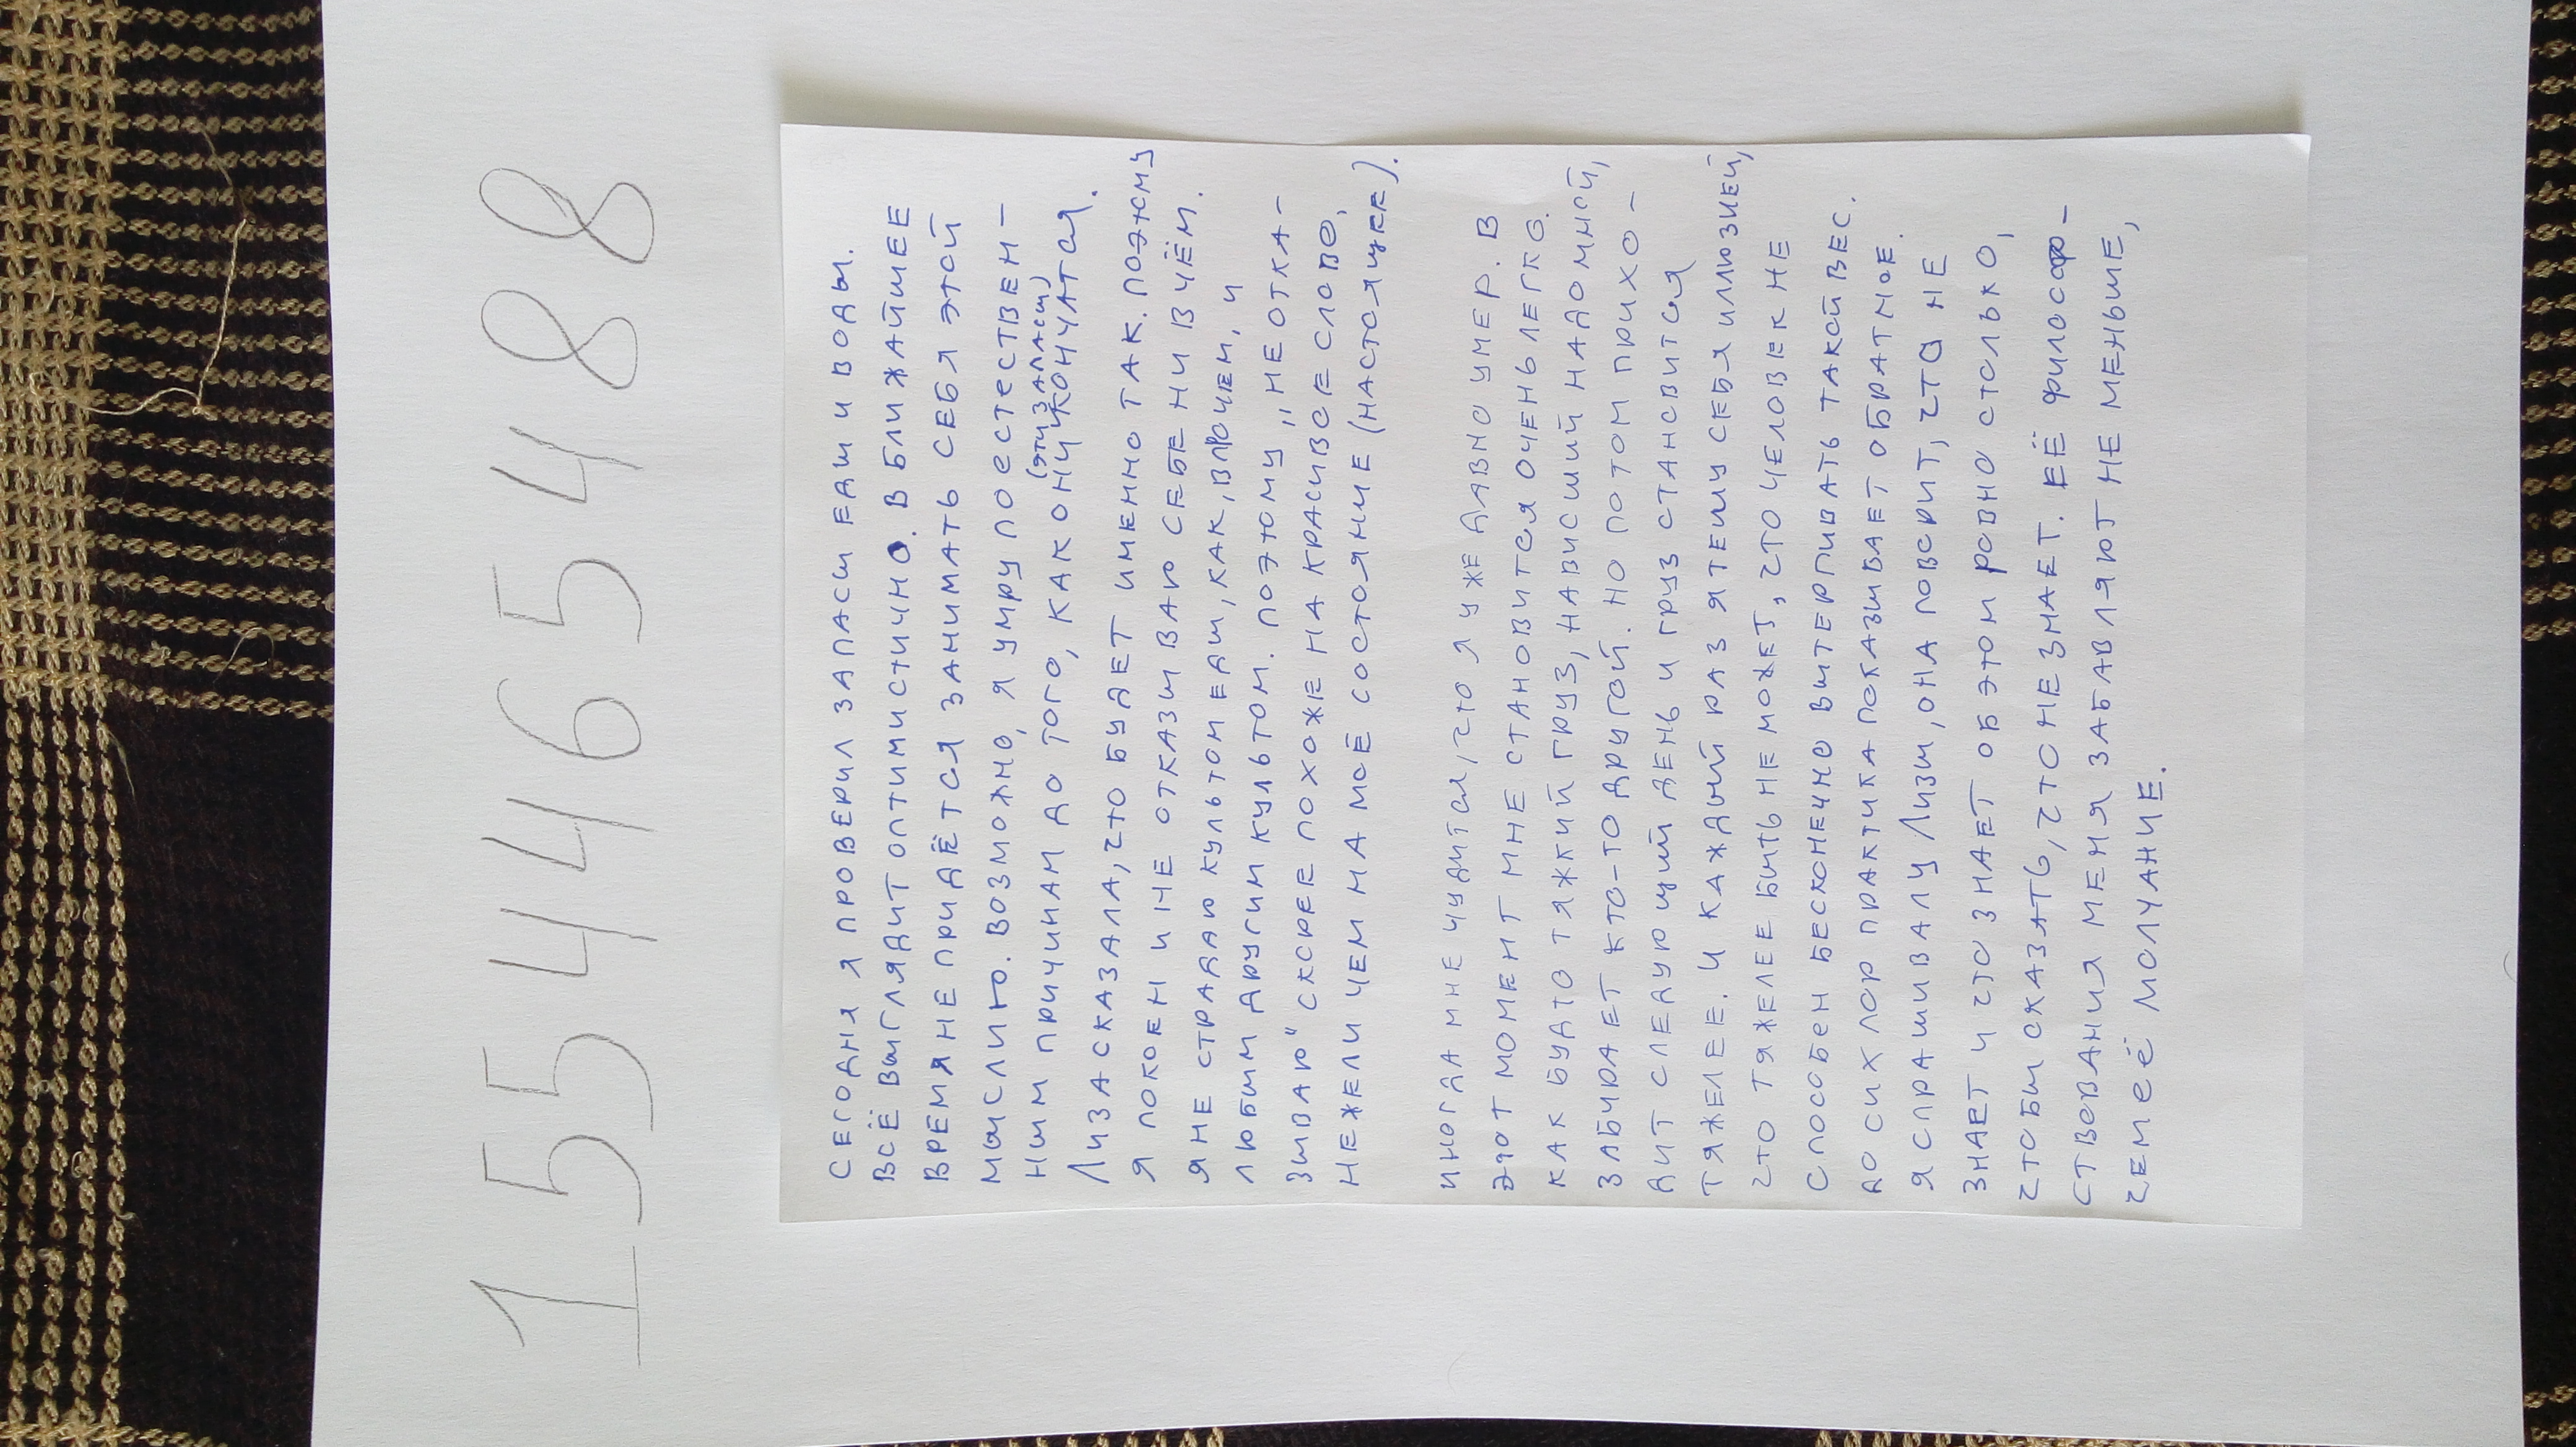 155465488
СЕГОДНЯ Я ПРОВЕРИЛ ЗАПАСЫ ЕДЫ И ВОДЫ.
ВСЁ ВЫГЛЯДИТ ОПТИМИСТИЧНО. В БЛИЖАЙШЕЕ
ВРЕМЯ НЕ ПРИДЁТСЯ ЗАНИМАТЬ СЕБЯ ЭТОЙ
МЫСЛЬЮ. ВОЗМОЖНО, Я УМРУ ПО ЕСТЕСТВЕН-
НЫМ ПРИЧИНАМ ДО ТОГО, КАК ОНИ (ЭТИ ЗАПАСЫ) КОНЧАТСЯ.
ЛИЗА СКАЗАЛА, ЧТО БУДЕТ ИМЕННО ТАК. ПОЭТОМУ
Я ПОКОЕН И НЕ ОТКАЗЫВАЮ СЕБЕ НИ В ЧЁМ.
Я НЕ СТРАДАЮ КУЛЬТОМ ЕДЫ, КАК, ВПРОЧЕМ, И
ЛЮБЫМ ДРУГИМ КУЛЬТОМ. ПОЭТОМУ „НЕ ОТКА-
ЗЫВАЮ" СКОРЕЕ ПОХОЖЕ НА КРАСИВОЕ СЛОВО,
НЕЖЕЛИ ЧЕМ НА МОЁ СОСТОЯНИЕ (НАСТОЯЩЕЕ).
ИНОГДА МНЕ ЧУДИТСЯ, ЧТО Я УЖЕ ДАВНО УМЕР. В
ЭТОТ МОМЕНТ МНЕ СТАНОВИТСЯ ОЧЕНЬ ЛЕГКО.
КАК БУДТО ТЯЖКИЙ ГРУЗ, НАВИСШИЙ НАДО МНОЙ,
ЗАБИРАЕТ КТО-ТО ДРУГОЙ. НО ПОТОМ ПРИХО-
ДИТ СЛЕДУЮЩИЙ ДЕНЬ И ГРУЗ СТАНОВИТСЯ
ТЯЖЕЛЕЕ. И КАЖДЫЙ РАЗ Я ТЕШУ СЕБЯ ИЛЛЮЗИЕЙ,
ЧТО ТЯЖЕЛЕЕ БЫТЬ НЕ МОЖЕТ, ЧТО ЧЕЛОВЕК НЕ
СПОСОБЕН БЕСКОНЕЧНО ВЫТЕРПИВАТЬ ТАКОЙ ВЕС.
ДО СИХ ПОР ПРАКТИКА ПОКАЗЫВАЕТ ОБРАТНОЕ.
Я СПРАШИВАЛ У ЛИЗЫ, ОНА ГОВОРИТ, ЧТО НЕ
ЗНАЕТ И ЧТО ЗНАЕТ ОБ ЭТОМ РОВНО СТОЛЬКО,
ЧТОБЫ СКАЗАТЬ, ЧТО НЕ ЗНАЕТ. ЕЁ ФИЛОСОФ-
СТВОВАНИЯ МЕНЯ ЗАБАВЛЯЮТ НЕ МЕНЬШЕ,
ЧЕМ ЕЁ МОЛЧАНИЕ.